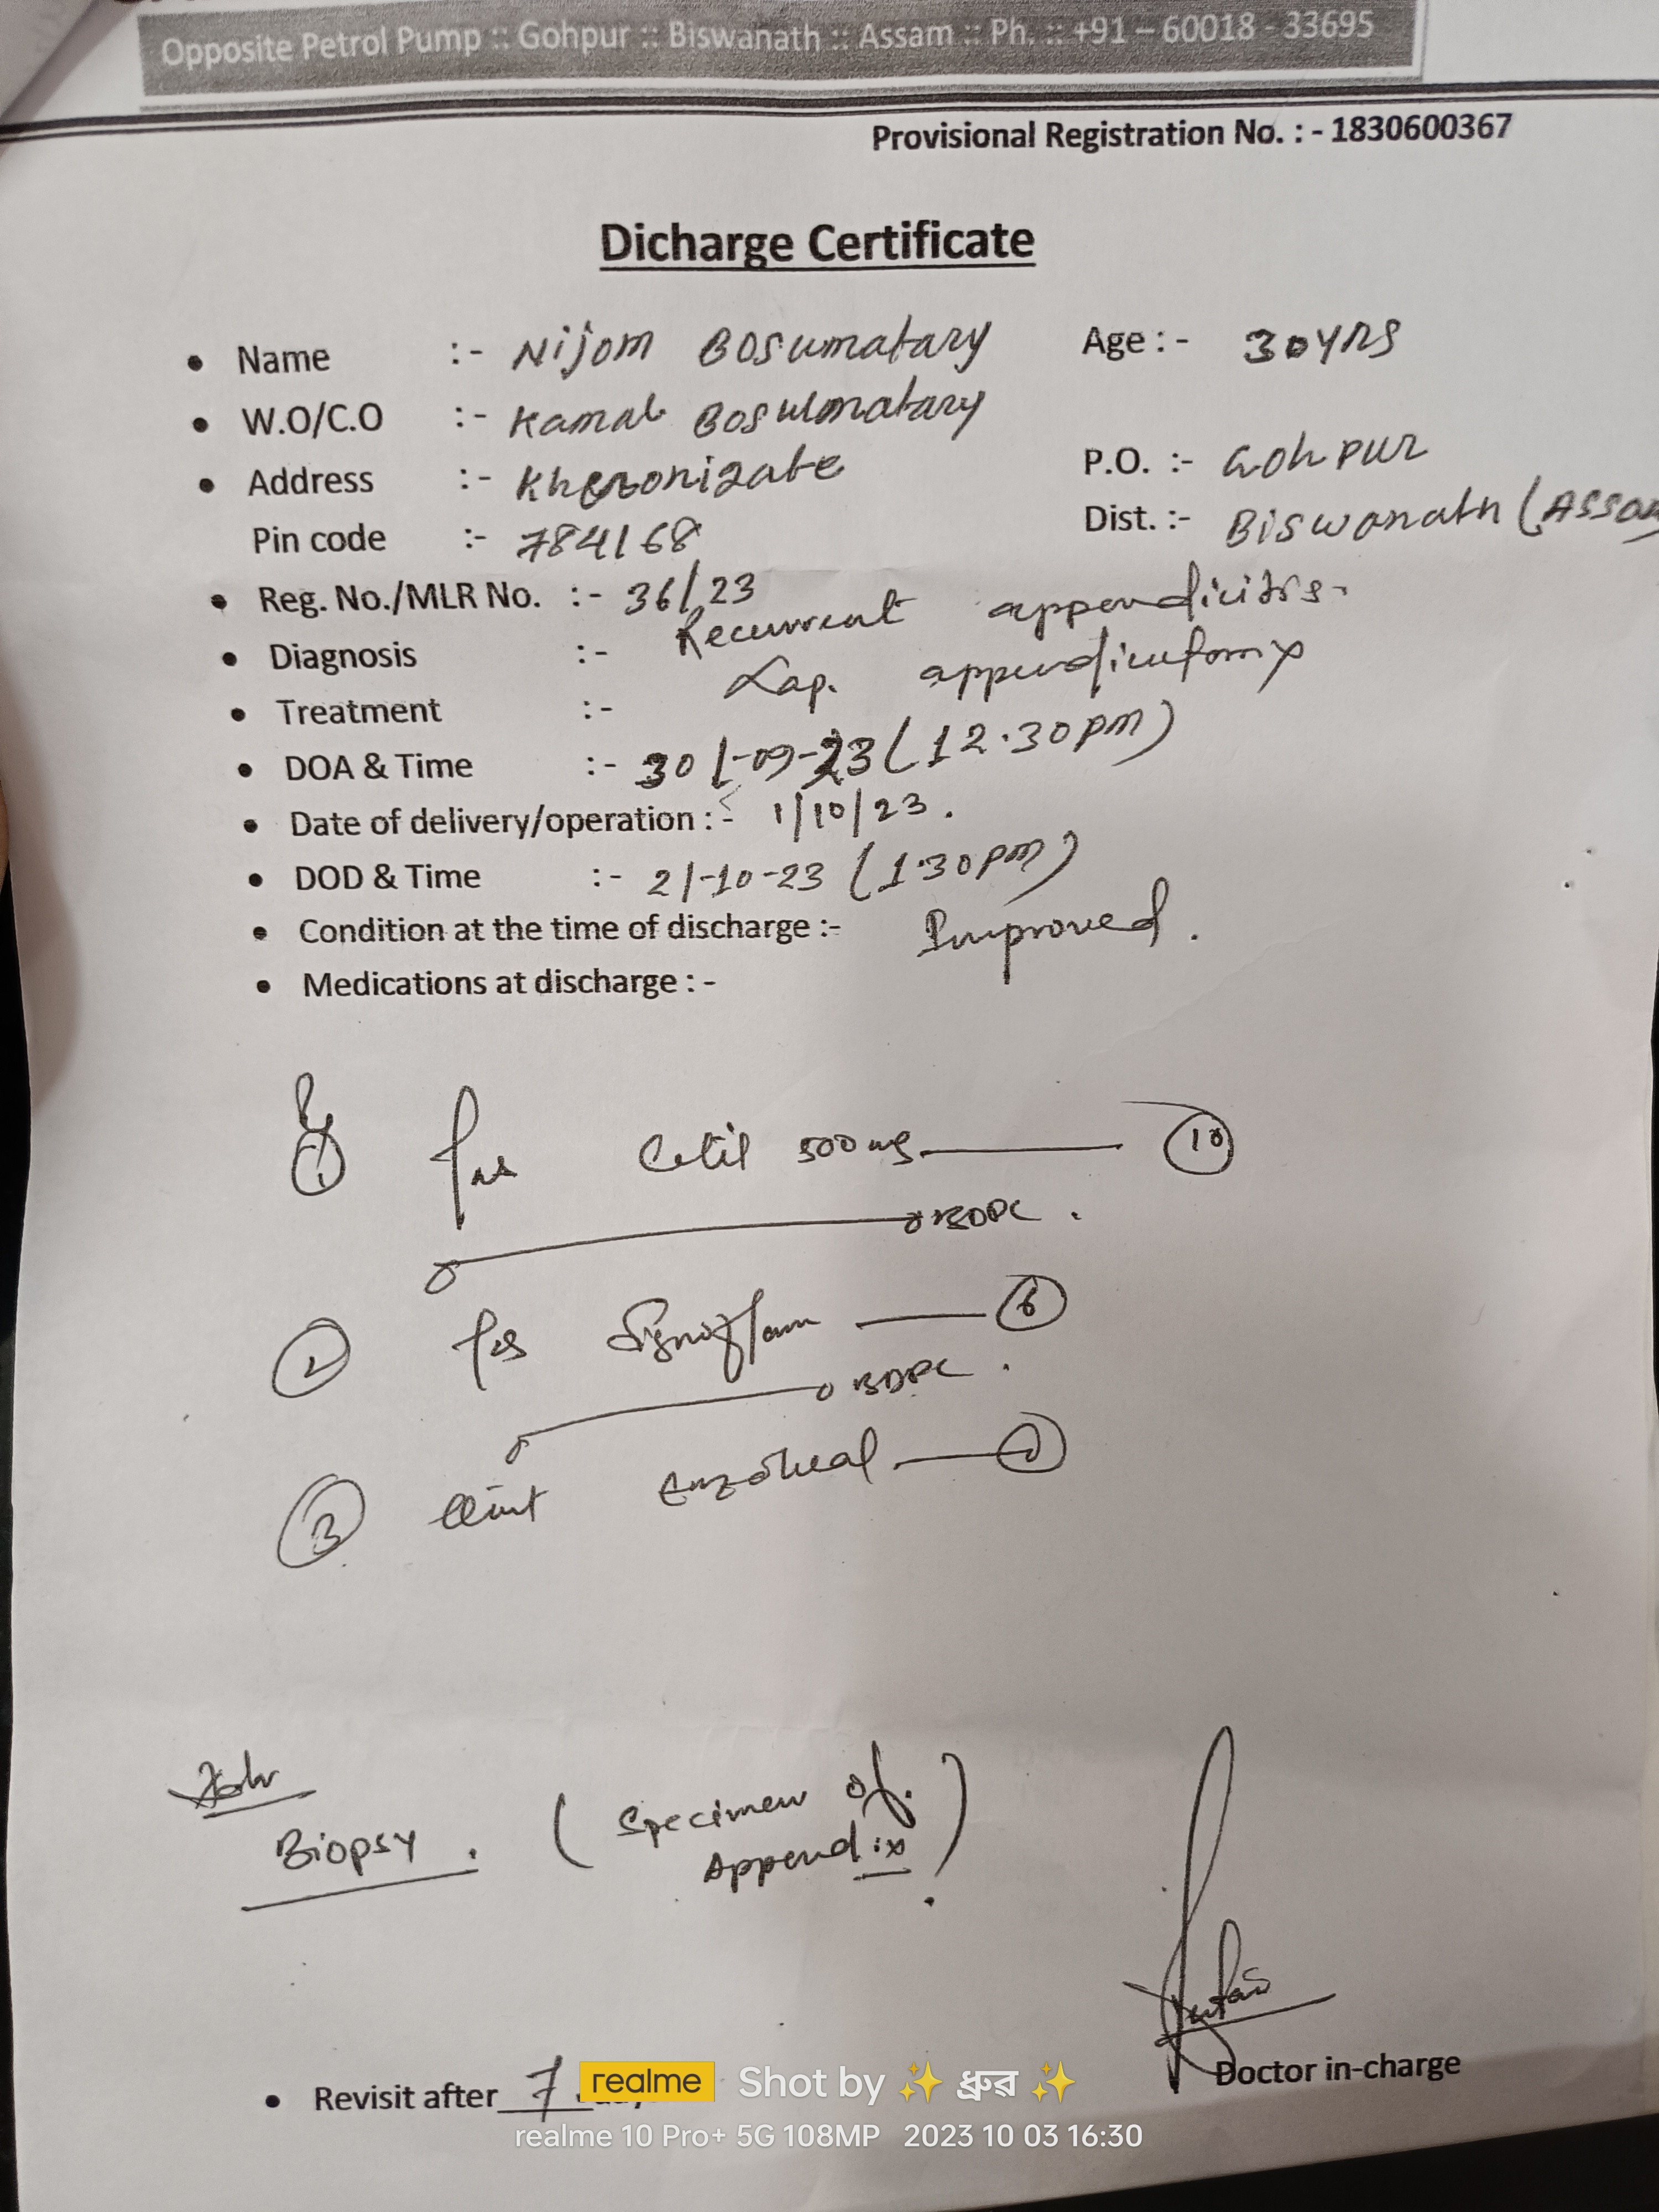 Opposite Petrol Pump :: Gohpur :: Biswanath :: Assam :: Ph. :: +91 – 60018 - 33695
Provisional Registration No. : - 1830600367
Dicharge Certificate
• Name :- Nijom Bosumatary Age : - 30 YRS
• W.O/C.O :- Kamal Bosulmatary
• Address :- P.O. :- Gohpur
Pin code :- 784168 Dist. :- Biswanath (Assam
• Reg. No./MLR No. :- 36/23
• Diagnosis :- Recurrent appendicitis
• Treatment :- Lap.
• DOA & Time :- 30/-09-23 (12.30pm)
• Date of delivery/operation : - 1/10/23.
• DOD & Time :- 2/-10-23 (1.30pm)
• Condition at the time of discharge :- Improved.
• Medications at discharge : -
① Cetil 500 mg 10
BDPC.
② Signoflam 6
BDPC.
③ Oint Enzoheal ①
Biopsy. (Specimen of.
Appendix)
Doctor in-charge
• Revisit after 7
realme Shot by ✨ ধ্ৰুৱ ✨
realme 10 Pro+ 5G 108MP 2023 10 03 16:30